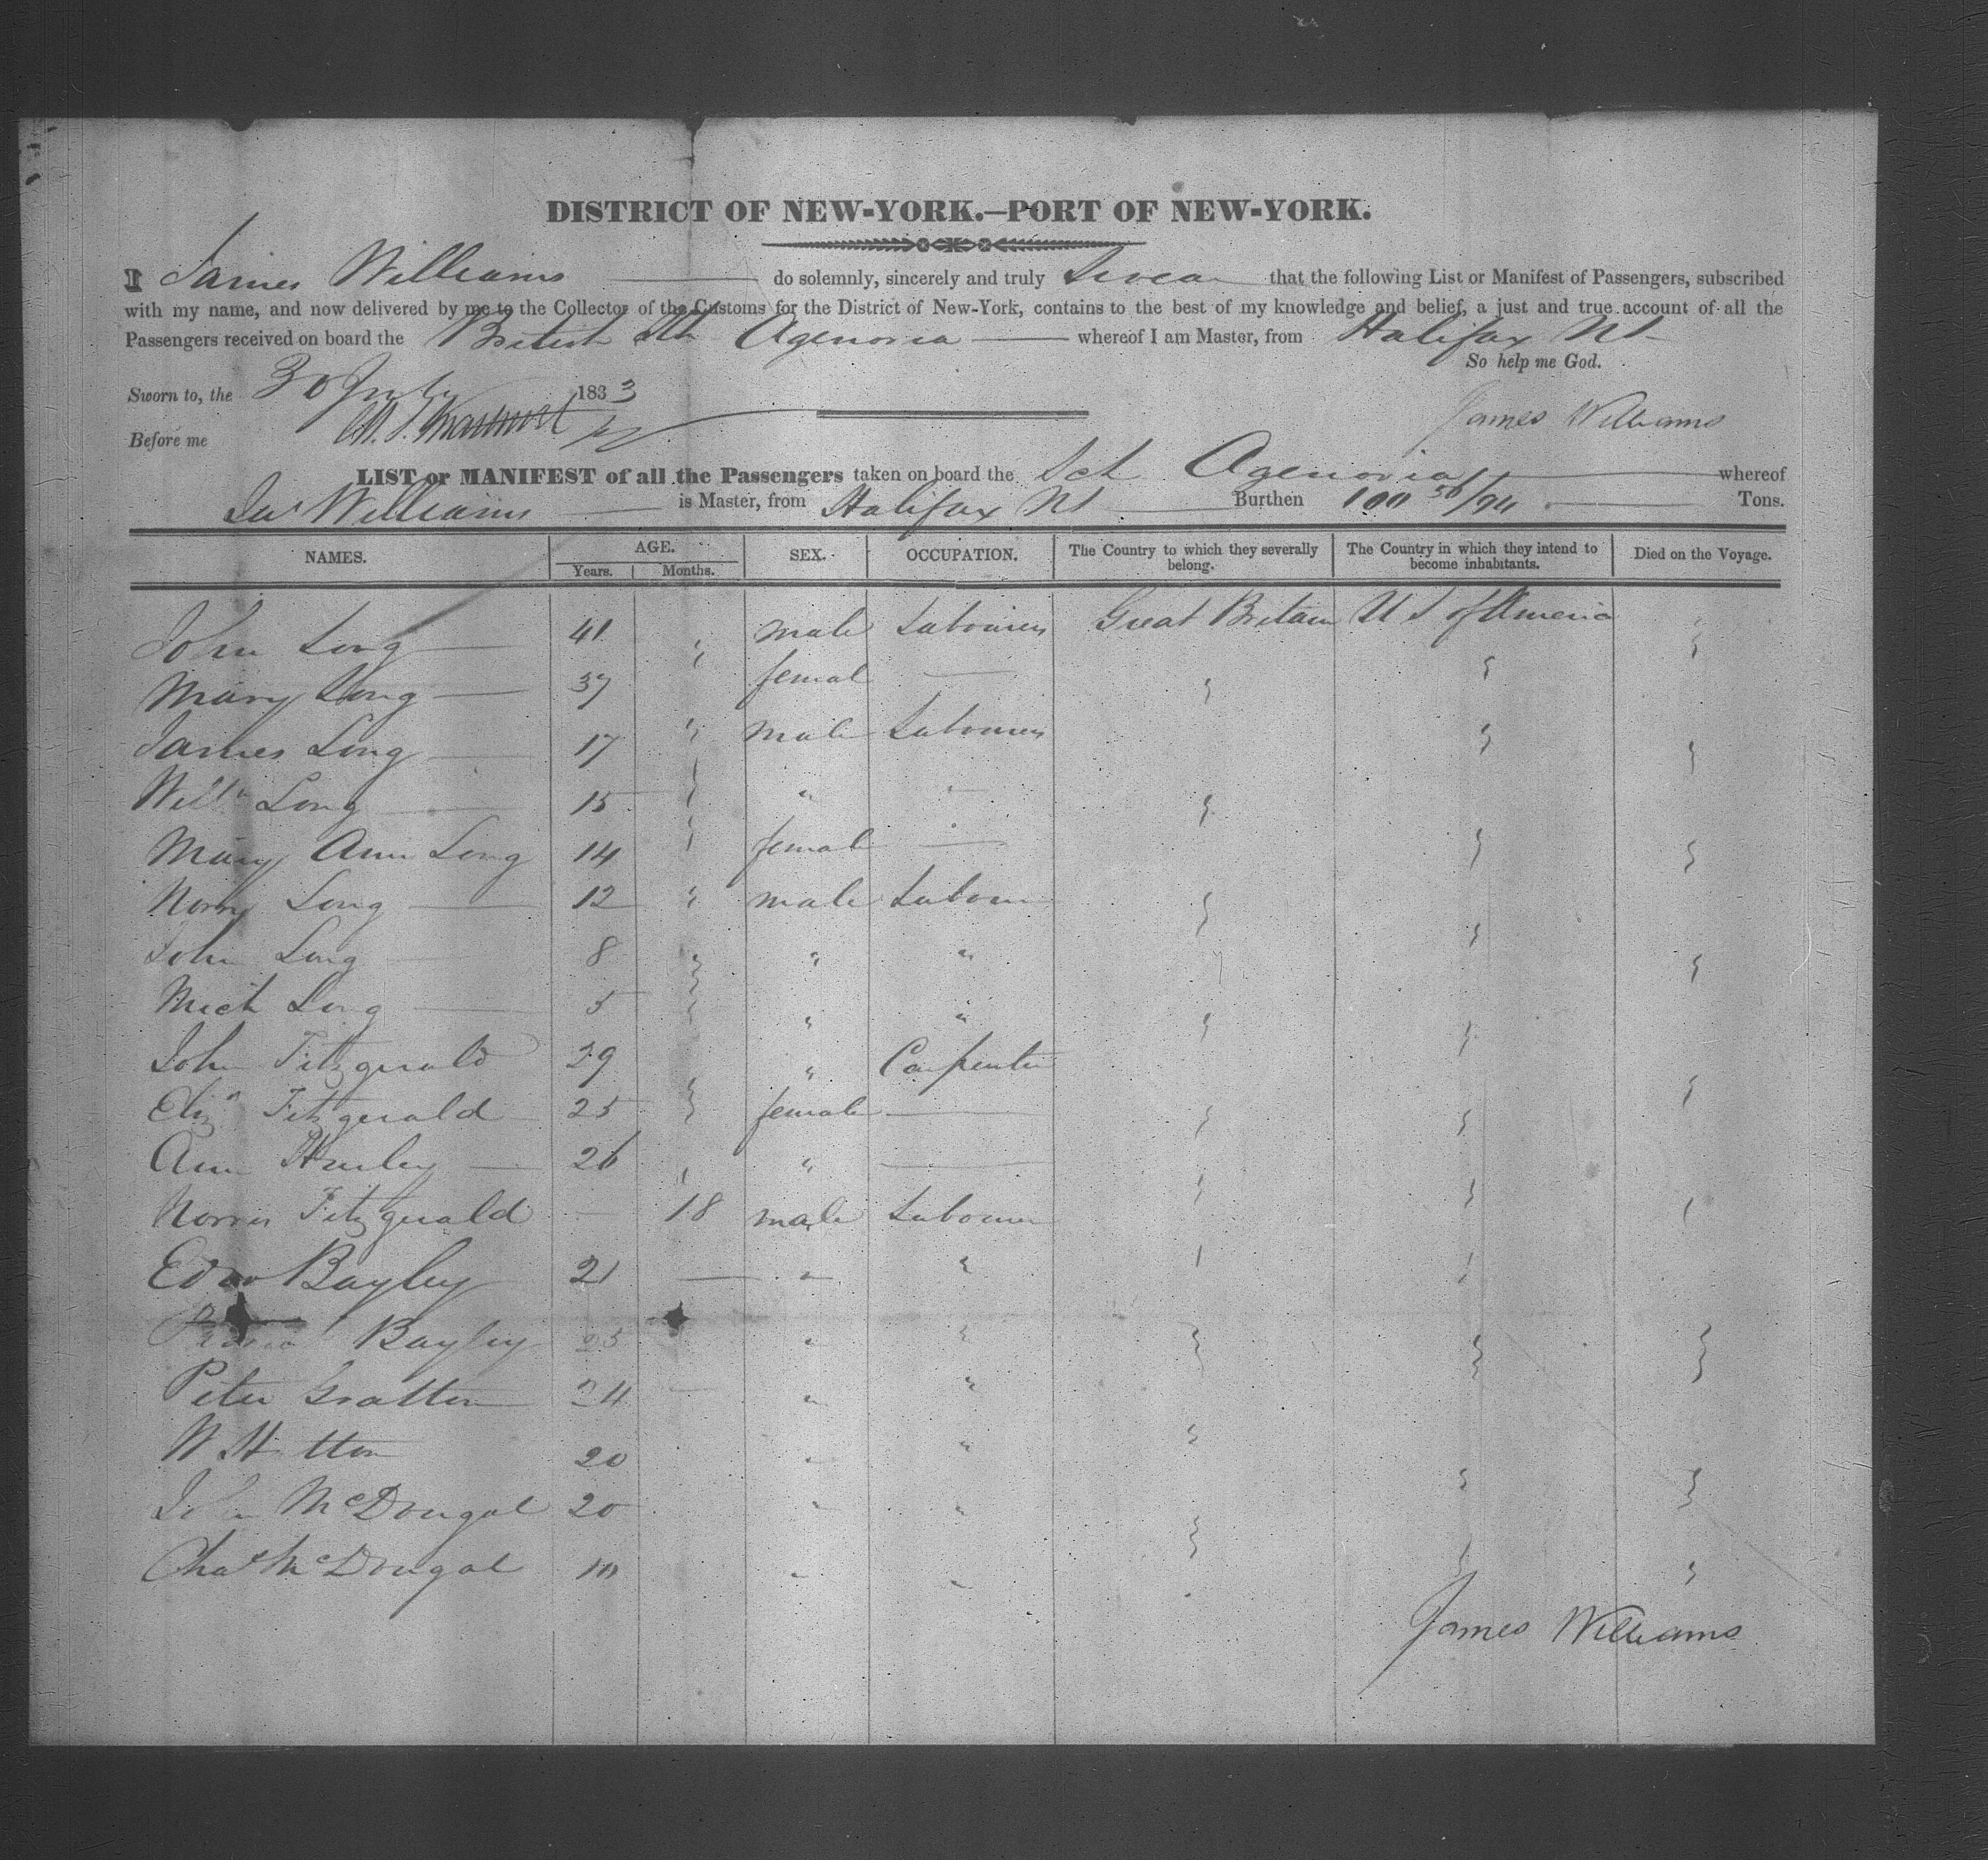 DISTRICT OF NEW-YORK.—PORT OF NEW-YORK.
I James Williams do solemnly, sincerely and truly Swear that the following List or Manifest of Passengers, subscribed
with my name, and now delivered by me to the Collector of the Customs for the District of New-York, contains to the best of my knowledge and belief, a just and true account of all the
Passengers received on board the British Sch Agenoria whereof I am Master, from Halifax NS
So help me God.
Sworn to, the 30 July 1833
James Williams
Before me
LIST or MANIFEST of all the Passengers taken on board the Sch Agenoria whereof
Jas Williams is Master, from Halifax NS Burthen 100 56/94 Tons.
NAMES. AGE. Years. Months. SEX. OCCUPATION. The Country to which they severally belong. The Country in which they intend to become inhabitants. Died on the Voyage.
John Long 41 male Labourer Great Britain U S of America
Mary Long 37 femal —
James Long 17 male Labourer
Willm Long 15 "
Mary Ann Long 14 femal —
Norry Long 12 male Labour
John Long 8 " "
Mich Long 5 " "
John Fitzgerald 29 " Carpenter
Eliza Fitzgerald 25 female —
Ann Hurley 26 " —
Norris Fitzgerald — 18 male Labourer
Edw Bayley 21 — " "
Bayley 25 " "
Peter Gratton 24 — " "
W Hutton 20 " "
John McDougal 20 " "
Chas McDougal 10 " "
James Williams